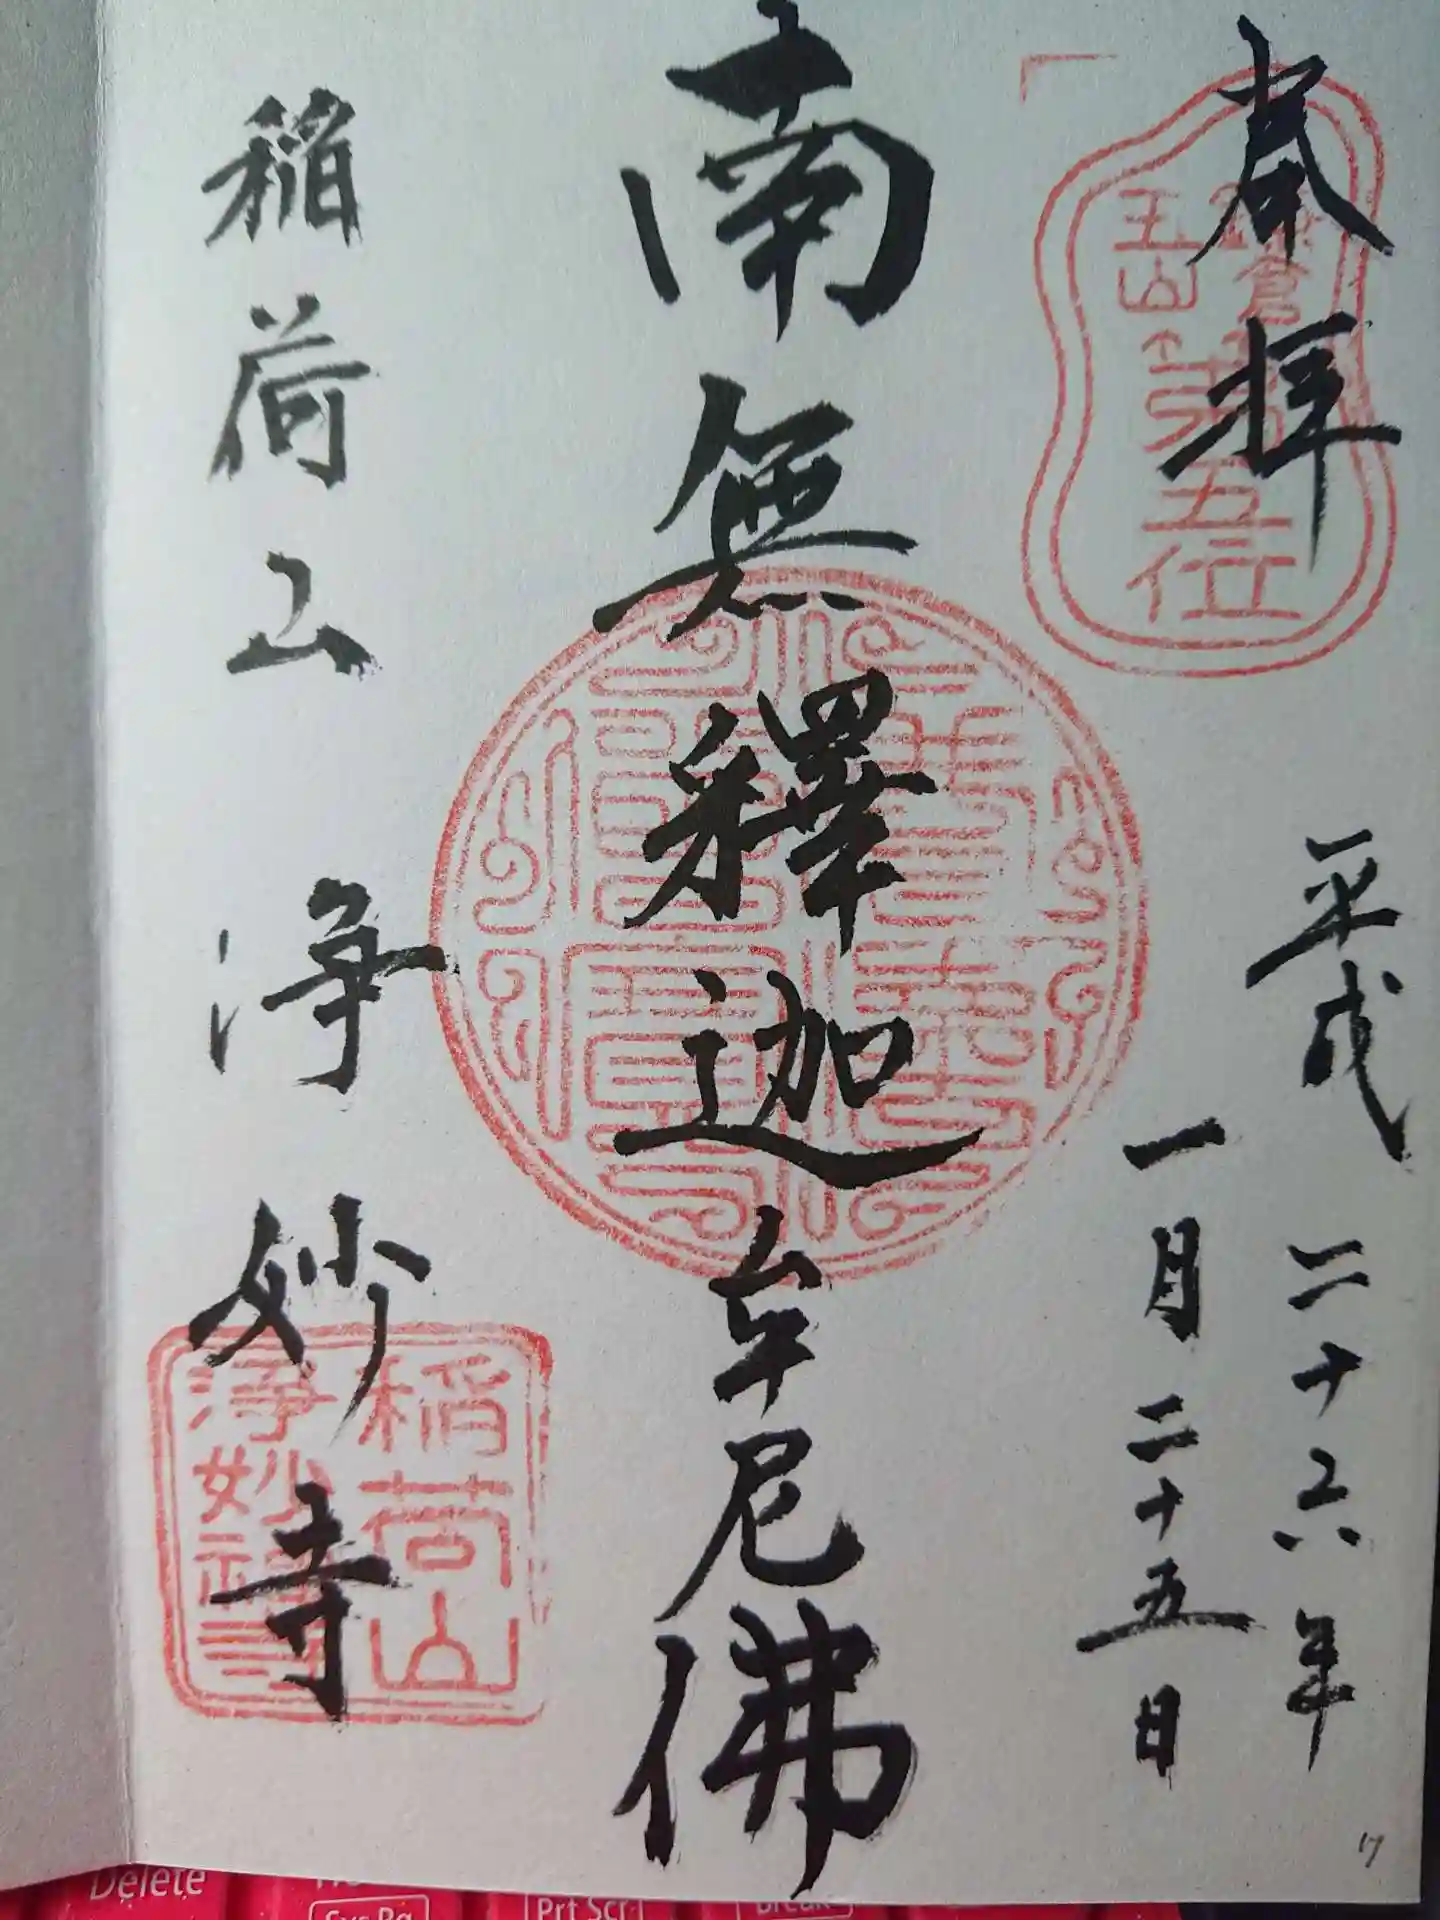 奉拝
平成二十六年
一月二十五日
南無釋迦牟尼佛
稲荷山 浄妙寺
鎌倉
五山
第五位
佛法僧寳
稲荷山
浄妙禅寺
17
Delete
Sys Rq
Prt Scr
Break